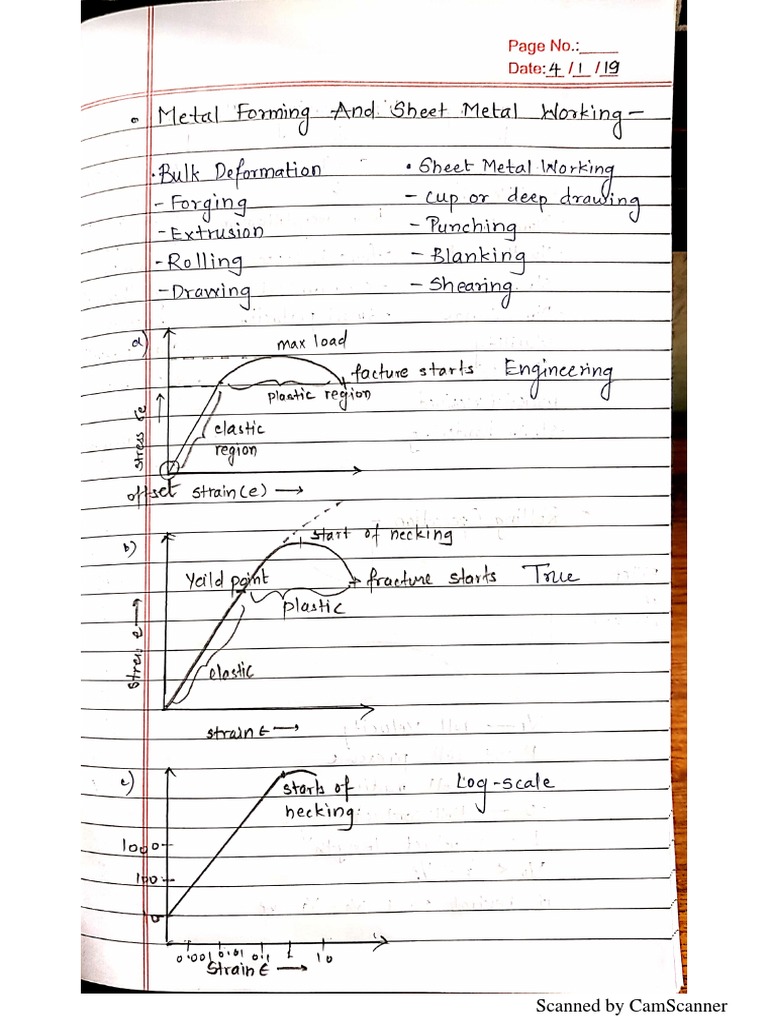 Page No.:
Date: 4 / 1 / 19
Metal Forming And Sheet Metal Working -
• Bulk Deformation
- Forging
- Extrusion
- Rolling
- Drawing
• Sheet Metal Working
- cup or deep drawing
- Punching
- Blanking
- Shearing
a)
max load
facture starts Engineering
plastic region
elastic
region
stress σe
offset strain(e) →
b)
start of necking
Yeild point
fracture starts True
plastic
elastic
strain ε →
c)
starts of
necking
Log-scale
1000
100
10
0.001 0.01 0.1 1 10
Strain ε →
Scanned by CamScanner